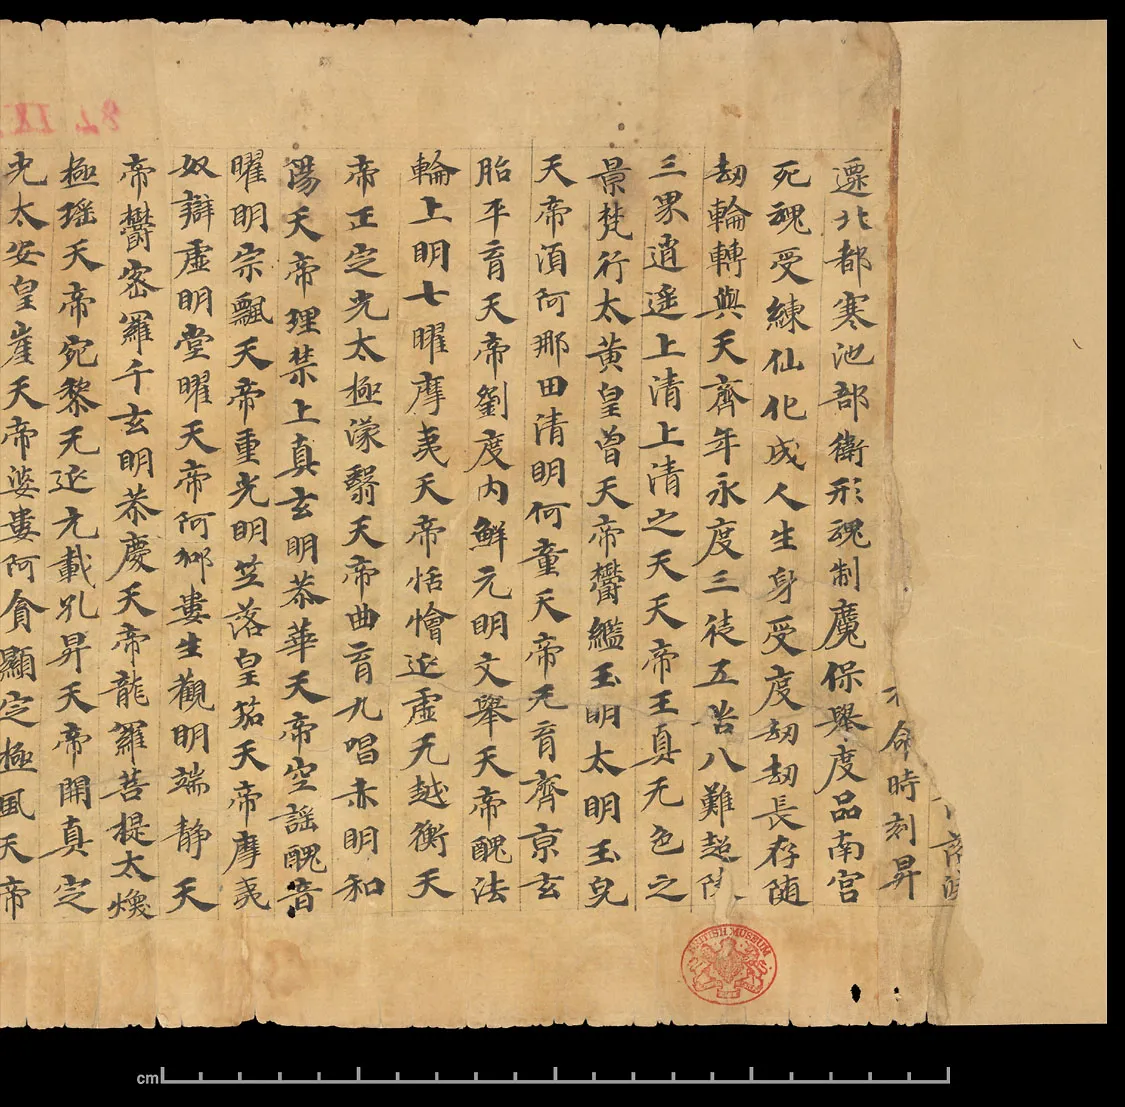 命時刻昇
遷北都寒池部衛形魂制魔保舉度品南宮
死魂受練仙化成人生身受度劫劫長存随
劫輪轉與天齊年永度三徒五苦八難超
三界逍遥上清上清之天天帝玉真无色之
景梵行太黄皇曾天帝鬱鑑玉明太明玉皃
天帝湏阿那田清明何童天帝无育齊京玄
胎平育天帝劉度内鮮元明文舉天帝醜法
輪上明七曜摩夷天帝恬憺延虚无越衡天
帝正定光太極濛翳天帝曲育九唱赤明和
陽天帝理禁上真玄明恭華天帝空謡醜音
曜明宗飄天帝重光明竺落皇笳天帝摩夷
奴辯虚明堂曜天帝阿郍婁生觀明端静天
帝鬱密羅千玄明恭慶天帝龍羅菩提太煥
極瑶天帝宛黎无延元載孔昇天帝開真定
光太安皇崖天帝婆婁阿貪顯定極風天帝
BRITISH MUSEUM
cm